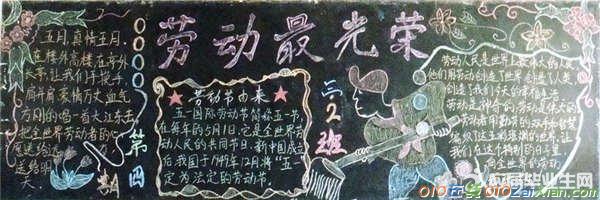 劳动最光荣
五月,真情五月
在楼外高楼在海外
天亭,让我们手挽手,
肩并肩豪情万丈血气
方刚的唱一首大江东去
把全世界劳动者的心
送给
送给明
天。
第四
劳动节由来
五一国际劳动节简称五一节,
在每年的5月1日,它是全世界劳
动人民的共同节日。新中国成立
后我国于1949年12月,将“五一”
定为法定的劳动节。
三2班
劳动人民是世界上最伟大的人
他们用劳动创造了世界创造了人类
创造了我们今天的幸福生活
劳动是神奇的,劳动是伟大的
劳动者用勤劳的双手和智慧
编织了这五彩斑斓的世界,让
我们在这个特别的日子里
向全世界的劳动
应届毕业生网
010在线 010ZaiXian.com